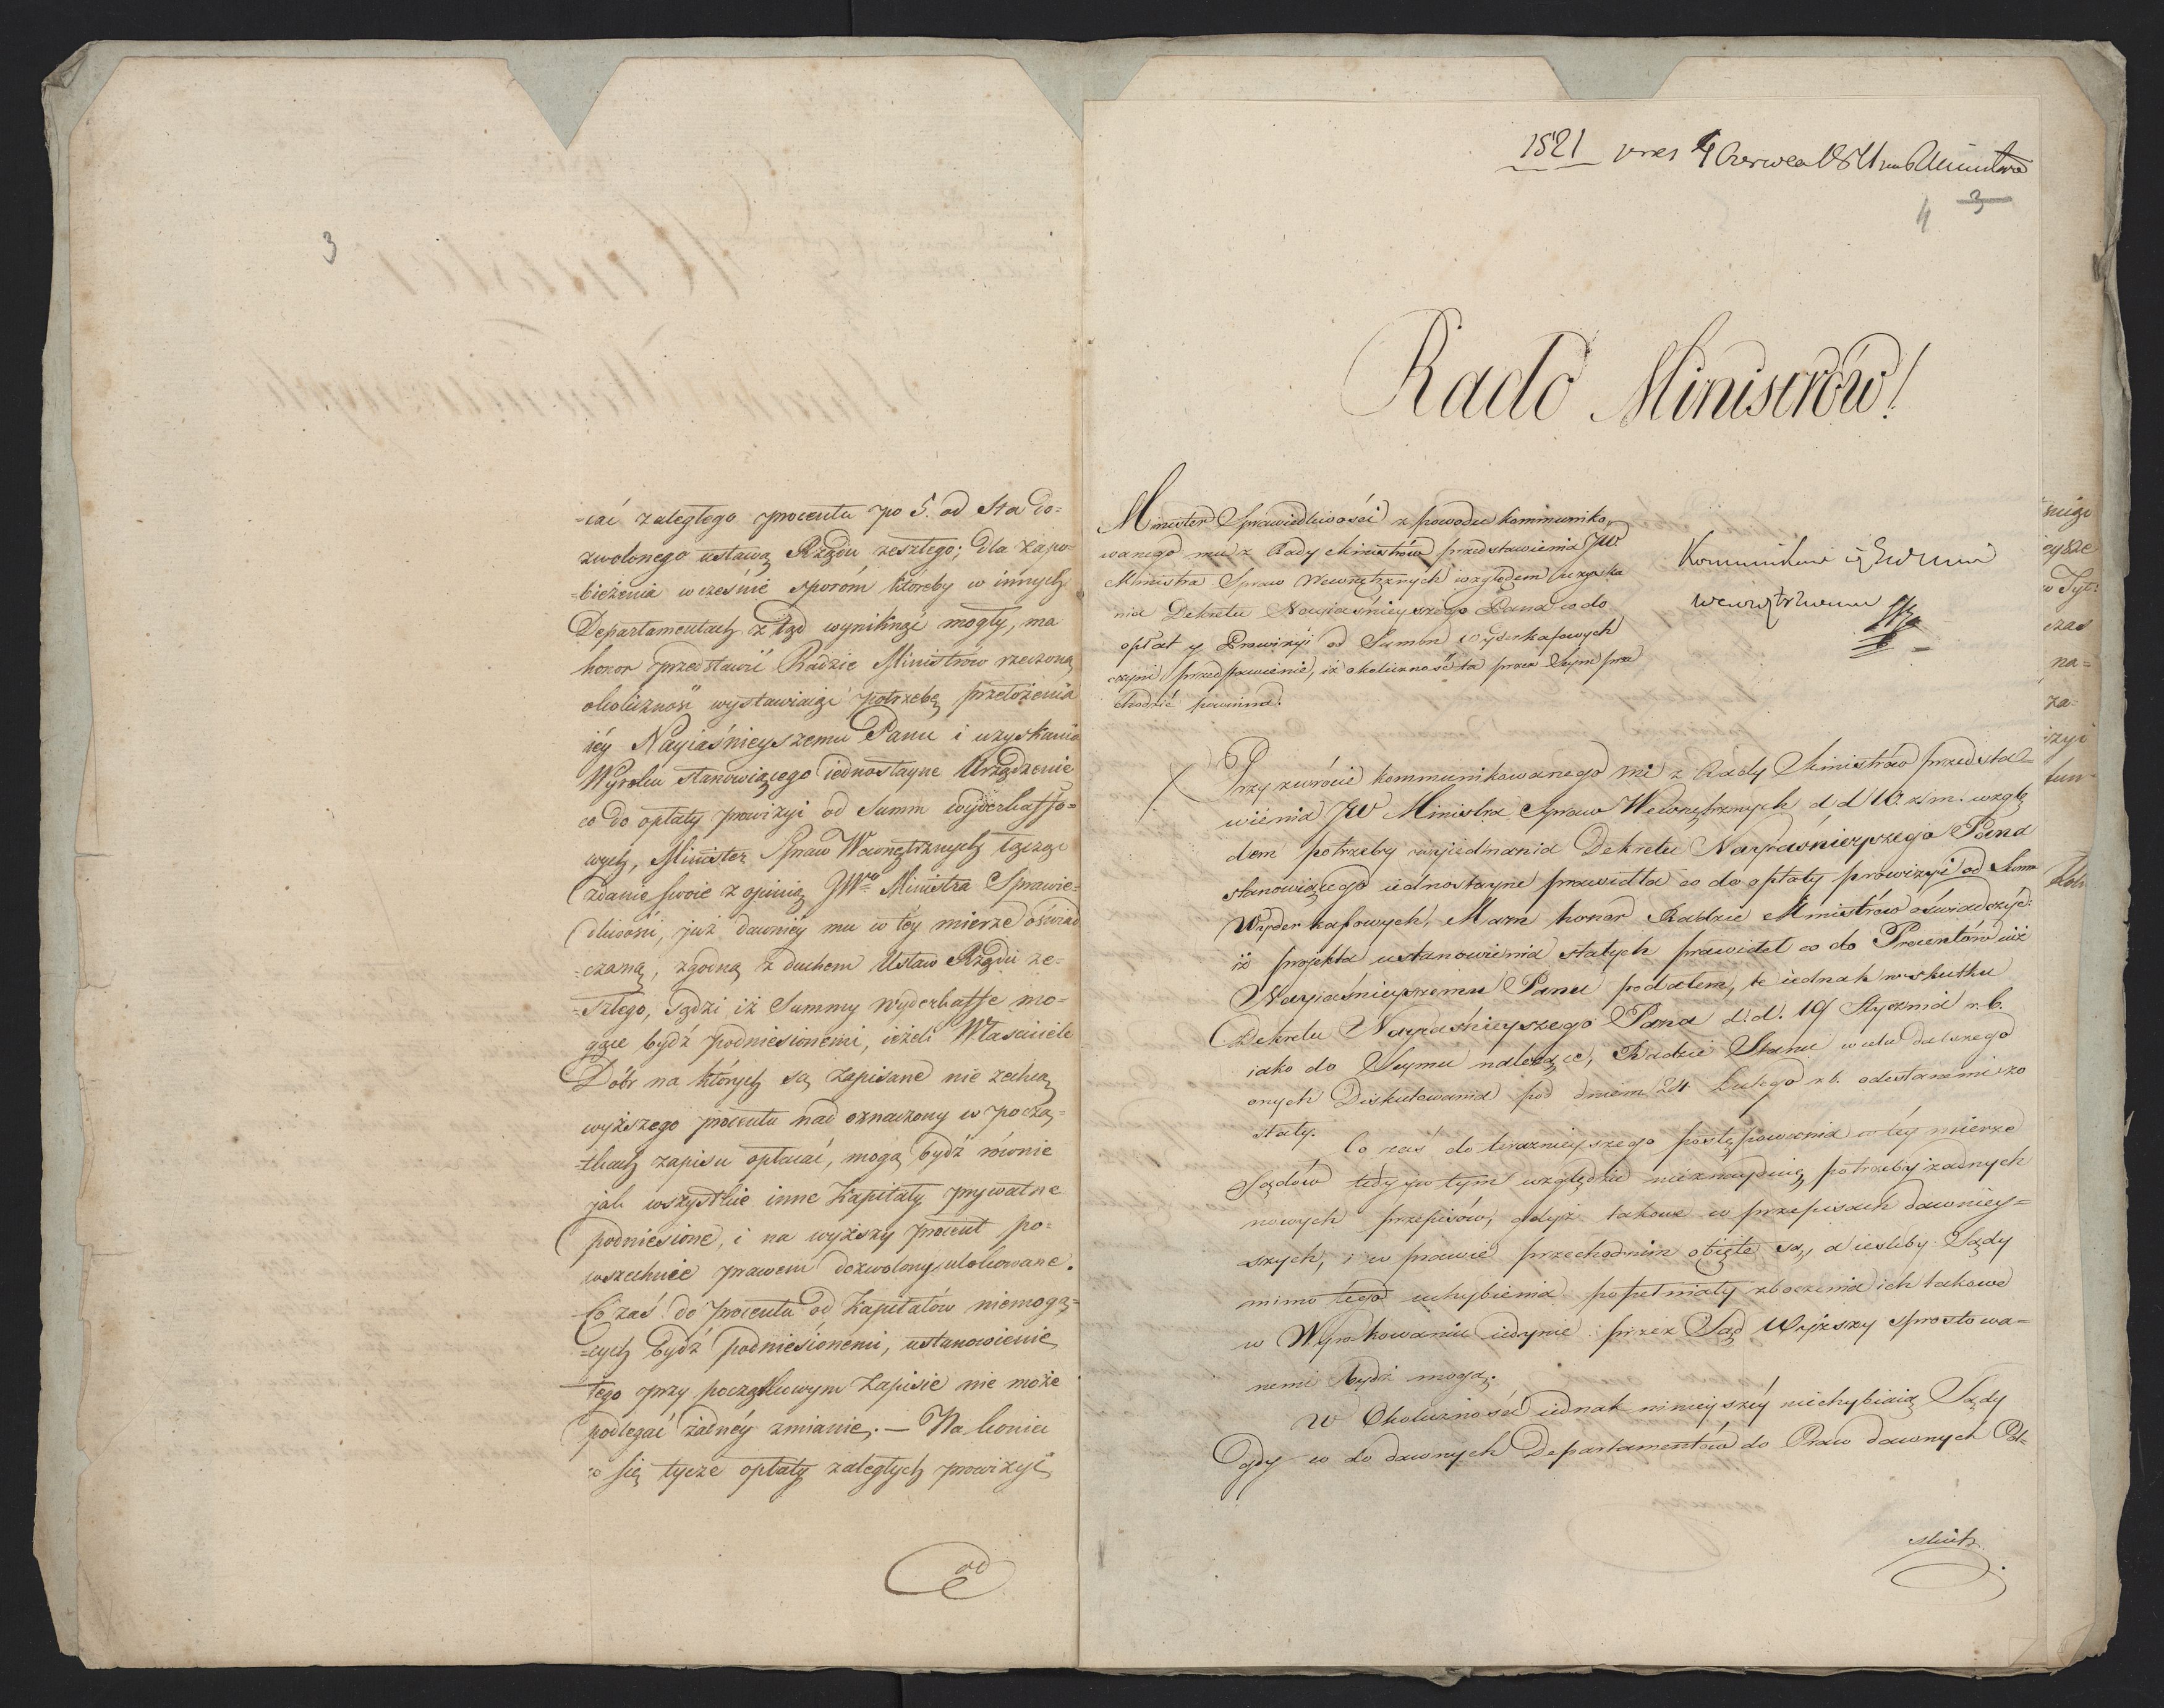 3
-cać zaległego procentu po 5. od Sta do-
zwolonego ustawą Rządu zeszłego; dla zapo-
-bieżenia wcześnie sporóm któreby w innych
Departamentach z tąd wyniknąć mogły, ma
honor przedstawić Radzie Ministrów rzeczoną
okoliczność wystawiaiąc potrzebę przełożenia
iéy Nayiaśnieyszemu Panu i uzyskania
Wyroku stanowiącego iednostayne Urządzenie
co do opłaty prowizyi od Summ wyderkaffo-
wych, Minister Spraw Wewnętrznych łącząc
zdanie swoie z opinią JWo Ministra Sprawie-
dliwości, już dawniéy mu w téy mierze oświad
-czoną, zgodną z duchem Ustaw Rządu ze-
-szłego, sądzi, iż Summy wyderkaffe mo-
gące bydź podniesionemi, ieżeli Własciciele
Dóbr na których są zapisane nie zechcą
wyższego procentu nad oznaczony w począ-
-tkach zapisu opłacać, mogą bydź równie
jak wszystkie inne Kapitały prywatne
podniesione, i na wyższy procent po-
wszechnie prawem dozwolony ulokowane.
Co zaś do procentu od Kapitałów niemogą-
-cych bydź podniesionemi, ustanowienie
tego przy początkowym Zapisie nie może
podlegać żadnéy zmianie. — Na koniec
co się tycze opłaty zaległych prowizyi
od
1821 pres 4 Czerwca
4 3
Rado Ministrów!
Minister Sprawiedliwości z powodu kommuniko-
wanego mu z Rady Ministrów przedstawienia JW
Ministra Spraw Wewnętrznych względem uzyska
nia Dekretu Nayiaśnieyszego Pana co do
opłat y Prowizyi od Summ Wyderkafowych
czyni przedstawienie, iż okoliczność ta przez Seym prze
chodzić powinna.
Wewnętrznemu
Przy zwrócie kommunikowanego mi z Rady Ministrów przedsta-
wienia JW Ministra Spraw Wewnętrznych d d 10. z. m. wzglę
dem potrzeby wyiednania Dekretu Nayiaśnieyszego Pana
stanowiącego iednostayne prawidła co do opłaty prowizyi od Summ
Wyderkafowych, Mam honor Radzie Ministrów oświadczyć:
iż projekta ustanowienia stałych prawideł co do Procentów iuż
Nayiaśnieyszemu Panu podałem, te iednak w skutku
Dekretu Nayiaśnieyszego Pana d. d. 19 Stycznia r. b.
iako do Seymu należące, Radzie Stanu w celu dalszego
onych Diskutowania pod dniem 24 Lutego r. b. odesłanemi zo
stały.
Co zaś do teraznieyszego postępowania w téy mierze
Sądów tedy w tym względzie nieznayduię potrzeby żadnych
nowych przepisów, gdyż takowe w przepisach dawniey-
szych, i w prawie przechodnim obięte są, a iesliby Sądy
mimo tego uchybienia popełniały zboczenia ich takowe
w Wyrokowaniu iedynie przez Sąd Wyższy sprostowa-
nemi bydź mogą.
W Okoliczności iednak ninieyszéy niechybiaią Sądy
gdy co do dawnych Departamentów do Praw dawnych Pol-
skich